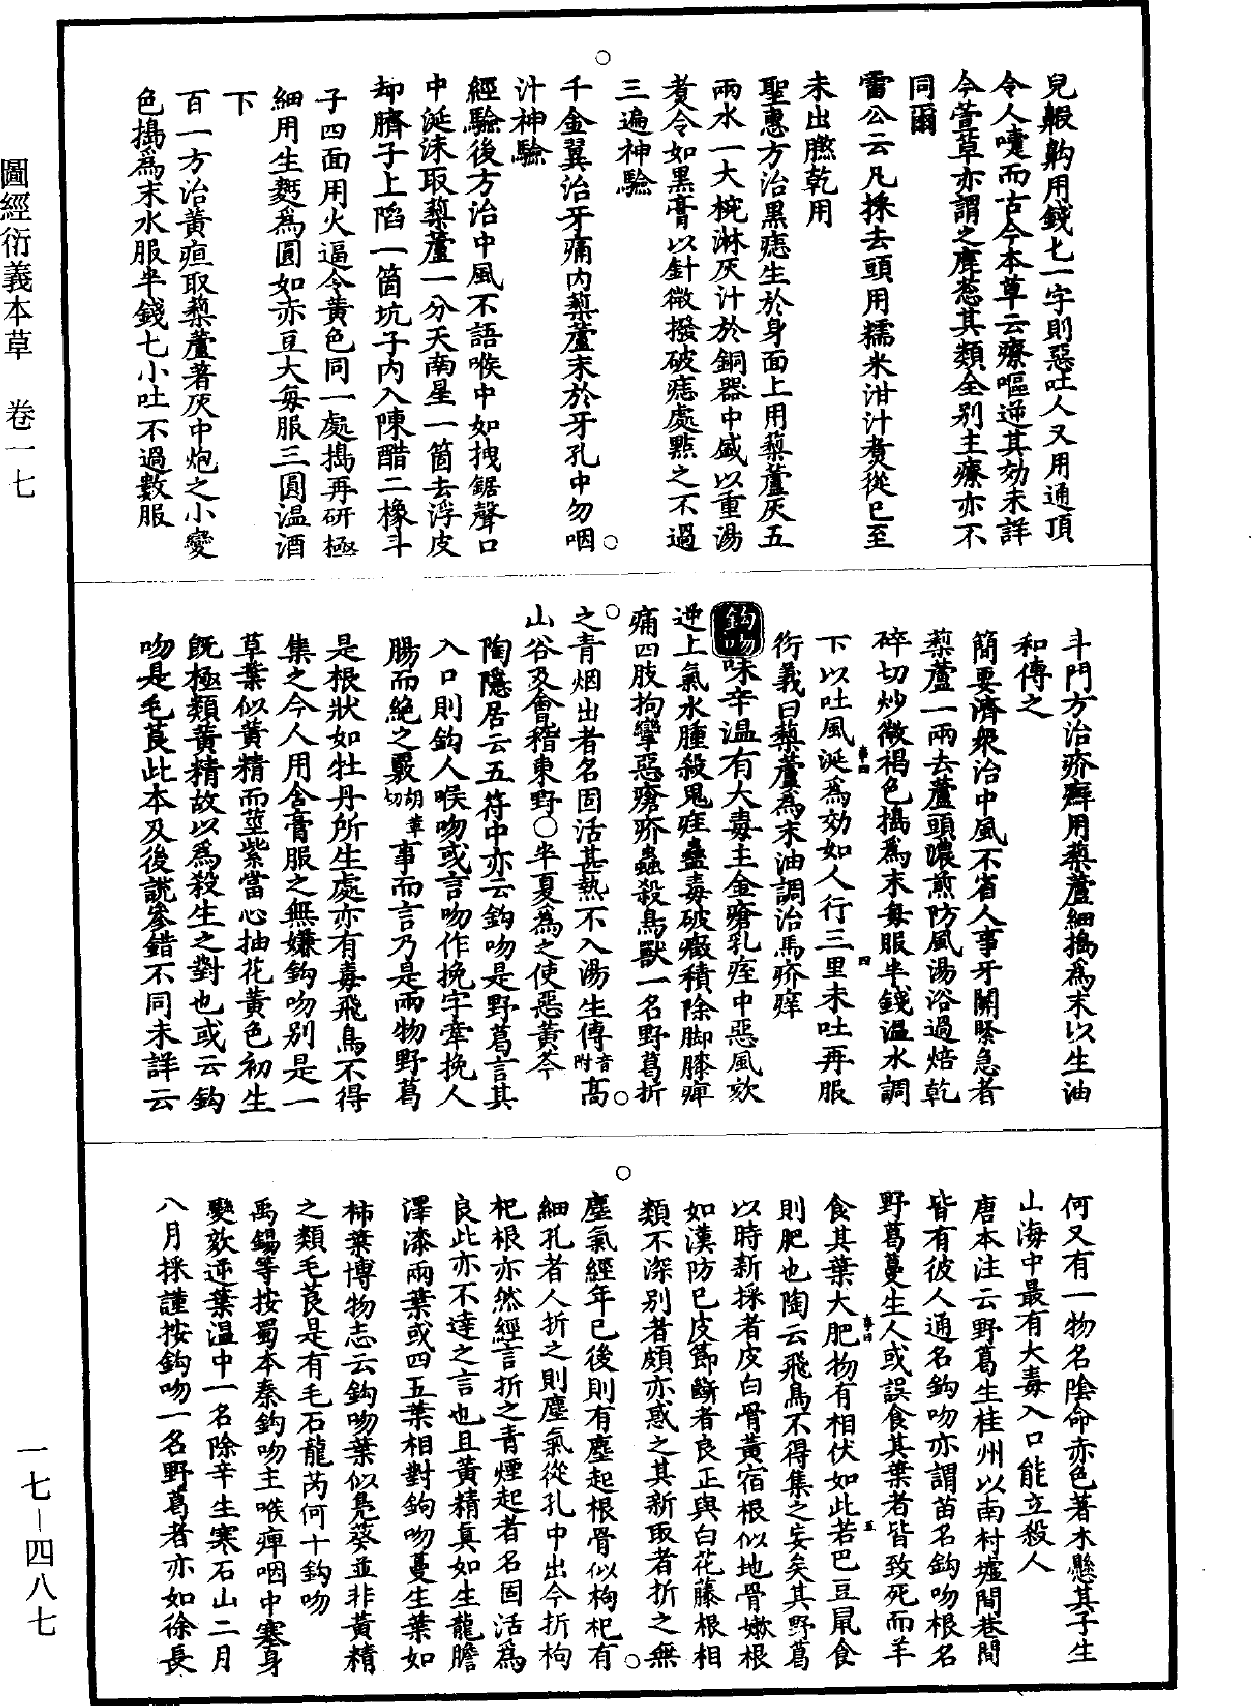 圖經衍義本草 卷一七
一七－四八七
兒齁䶎用錢七一字則惡吐人又用通頂
令人嚏而古今本草云療嘔逆其効未詳
今萱草亦謂之鹿葱其類全别主療亦不
同爾
雷公云凡採去頭用糯米泔汁煑從巳至
未出㬠乾用
聖惠方治黑痣生於身面上用藜蘆灰五
兩水一大椀淋灰汁於銅器中盛以重湯
煑令如黑膏以針微撥破痣處點之不過
三遍神驗
千金翼治牙痛内藜蘆末於牙孔中勿咽
汁神驗
經驗後方治中風不語喉中如拽鋸聲口
中涎沫取藜蘆一分天南星一箇去浮皮
却臍子上陷一箇坑子内入陳醋二橡斗
子四面用火逼令黄色同一處搗再研極
細用生麪爲圓如赤豆大每服三圓温酒
下
百一方治黄疸取藜蘆著灰中炮之小變
色搗爲末水服半錢七小吐不過數服
斗門方治疥癬用藜蘆細搗爲末以生油
和傅之
簡要濟衆治中風不省人事牙關緊急者
藜蘆一兩去蘆頭濃煎防風湯浴過焙乾
碎切炒微褐色搗爲末每服半錢温水調
下以吐風涎爲効如人行三里未吐再服
衍義曰藜蘆爲末油調治馬疥癢
鈎吻味辛温有大毒主金瘡乳痓中惡風欬
逆上氣水腫殺鬼疰蠱毒破癥積除脚膝痺
痛四肢拘攣惡瘡疥蟲殺鳥獸一名野葛折
之青烟出者名固活甚熱不入湯生傅音附高
山谷及會稽東野○半夏爲之使惡黄芩
陶隱居云五符中亦云鈎吻是野葛言其
入口則鈎人喉吻或言吻作挽字牽挽人
腸而絶之覈胡革切事而言乃是兩物野葛
是根狀如牡丹所生處亦有毒飛鳥不得
集之今人用合膏服之無嫌鈎吻别是一
草葉似黄精而莖紫當心抽花黄色初生
旣極類黄精故以爲殺生之對也或云鈎
吻是毛茛此本及後説參錯不同未詳云
何又有一物名陰命赤色著木懸其子生
山海中最有大毒入口能立殺人
唐本注云野葛生桂州以南村墟閭巷間
皆有彼人通名鈎吻亦謂苗名鈎吻根名
野葛蔓生人或誤食其葉者皆致死而羊
食其葉大肥物有相伏如此若巴豆鼠食
則肥也陶云飛鳥不得集之妄矣其野葛
以時新採者皮白骨黄宿根似地骨嫩根
如漢防巳皮節斷者良正與白花藤根相
類不深别者頗亦惑之其新取者折之無
塵氣經年巳後則有塵起根骨似枸杞有
細孔者人折之則塵氣從孔中出今折枸
杞根亦然經言折之青煙起者名固活爲
良此亦不達之言也且黄精真如生龍膽
澤漆兩葉或四五葉相對鈎吻蔓生葉如
柿葉博物志云鈎吻葉似鳧葵並非黄精
之類毛茛是有毛石龍芮何十鈎吻
禹錫等按蜀本秦鈎吻主喉痺咽中塞身
變欬逆葉温中一名除辛生寒石山二月
八月採謹按鈎吻一名野葛者亦如徐長